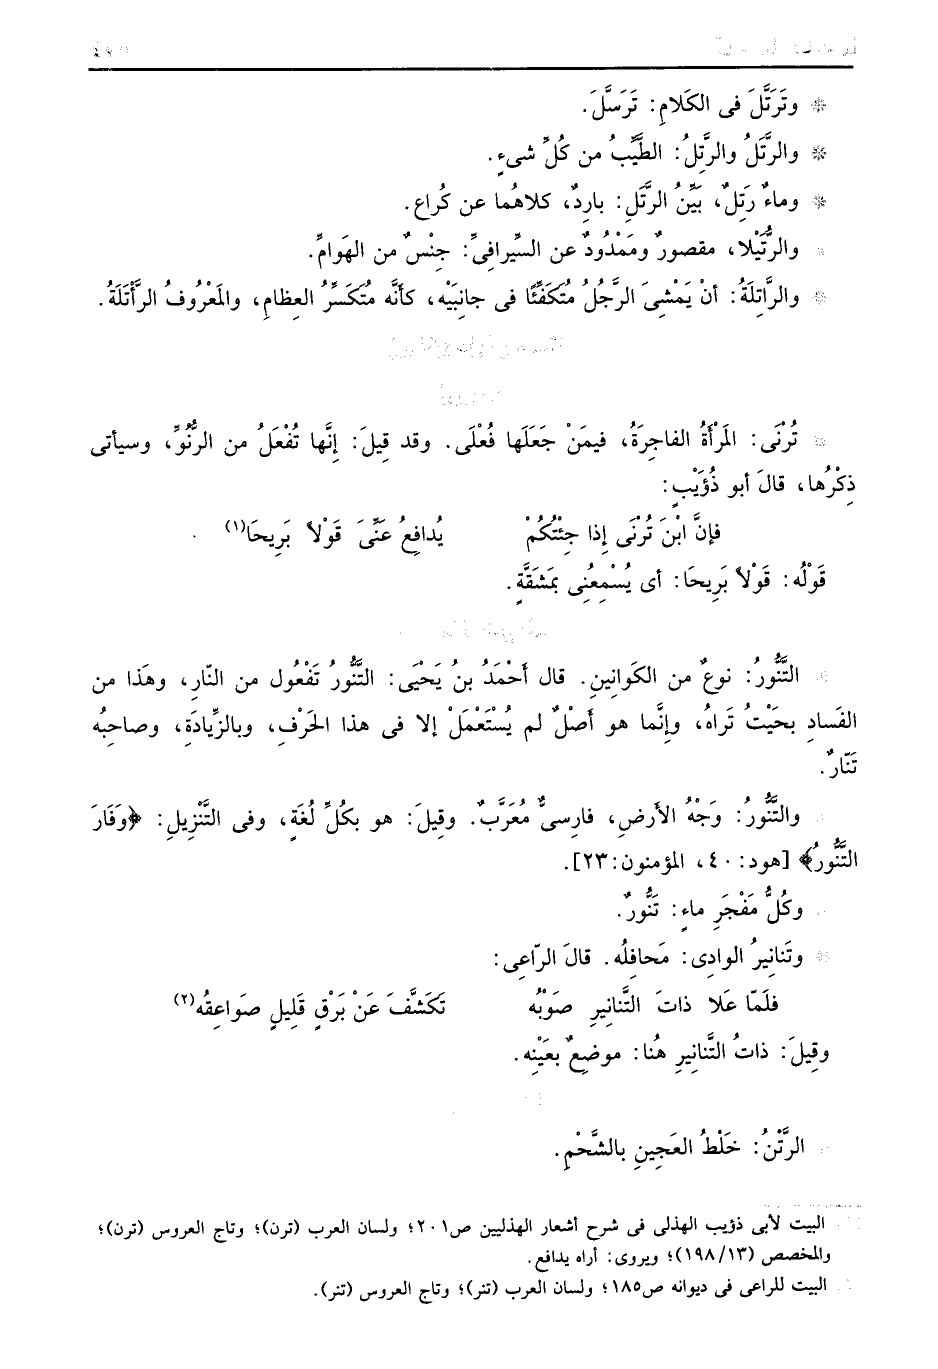 * وتَرَتَّلَ فى الكَلامِ: تَرَسَّلَ.
* والرَّتَلُ والرَّتِلُ: الطَّيِّبُ من كُلِّ شىءٍ.
* وماءٌ رَتِلٌ، بَيِّنُ الرَّتَلِ: بارِدٌ، كلاهُما عن كُراع.
* والرُّتَيْلا، مقصورٌ ومَمْدُودٌ عن السِّيرافىِّ: جِنْسٌ من الهَوامِّ.
* والرَّاتِلَةُ: أنْ يَمْشِىَ الرَّجُلُ مُتَكَفِّئًا فى جانِبَيْه، كأنَّه مُتَكَسِّرُ العِظامِ، والمَعْرُوفُ الرَّأْتَلَةُ.
* تُرْنَى: المَرْأةُ الفاجِرَةُ، فيمَنْ جَعَلَها فُعْلَى. وقد قِيلَ: إنَّها تُفْعَلُ من الرُّنُوِّ، وسيأتى
ذِكْرُها، قالَ أبو ذُؤَيْبٍ:
فإنَّ ابْنَ تُرْنَى إذا جِئْتُكُمْ يُدافِعُ عَنِّىَ قَوْلاً بَرِيحَا(١)
قَوْلُه: قَوْلاً بَرِيحَا: أى يُسْمِعُنِى بمَشَقَّةٍ.
* التَّنُّورُ: نوعٌ من الكَوانِينِ. قال أَحْمَدُ بنُ يَحْيَى: التَّنُّورُ تَفْعُول من النّارِ، وهَذا من
الفَسادِ بحَيْثُ تَراهُ، وإنَّما هو أَصْلٌ لم يُسْتَعْمَلْ إلا فى هذا الحَرْفِ، وبالزِّيادَةِ، وصاحِبُه
تَنّارٌ.
* والتَّنُّورُ: وَجْهُ الأرضِ، فارِسىٌّ مُعَرَّبٌ. وقِيلَ: هو بكُلِّ لُغَةٍ، وفى التَّنْزِيلِ: ﴿وَفَارَ
التَّنُّورُ﴾ [هود: ٤٠، المؤمنون:٢٣].
* وكُلُّ مَفْجَرِ ماءٍ: تَنُّورٌ.
* وتَنانِيرُ الوادِى: مَحافِلُه. قالَ الرّاعِى:
فلَمّا عَلا ذاتَ التَّنانِيرِ صَوْبُه تَكَشَّفَ عَنْ بَرْقٍ قَلِيلٍ صَواعِقُه(٢)
وقِيلَ: ذاتُ التَّنانِيرِ هُنا: موضِعٌ بعَيْنِه.
* الرَّتْنُ: خَلْطُ العَجِينِ بالشَّحْمِ.
البيت لأبى ذؤيب الهذلى فى شرح أشعار الهذليين ص٢٠١؛ ولسان العرب (ترن)؛ وتاج العروس (ترن)؛
والمخصص (١٩٨/١٣)؛ ويروى: أراه يدافع.
البيت للراعى فى ديوانه ص١٨٥؛ ولسان العرب (تنر)؛ وتاج العروس (تنر).